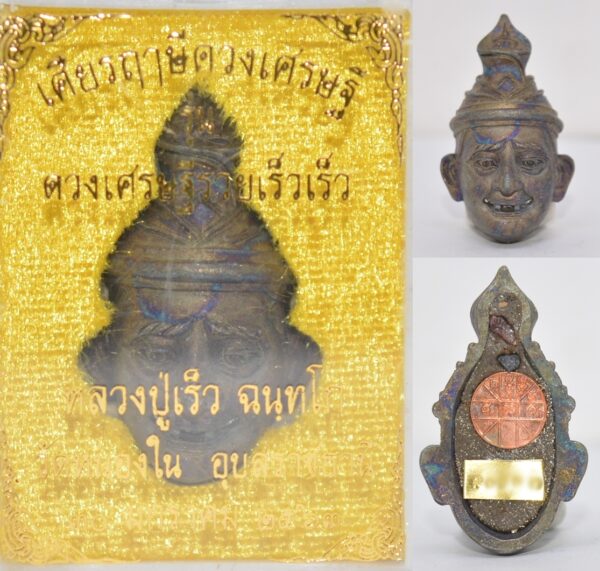 เศียรฤาษีดวงเศรษฐี
ดวงเศรษฐีรวยเร็วเร็ว
หลวงปู่เร็ว ฉนฺทโก
วัดหนองโน อุบลราชธานี